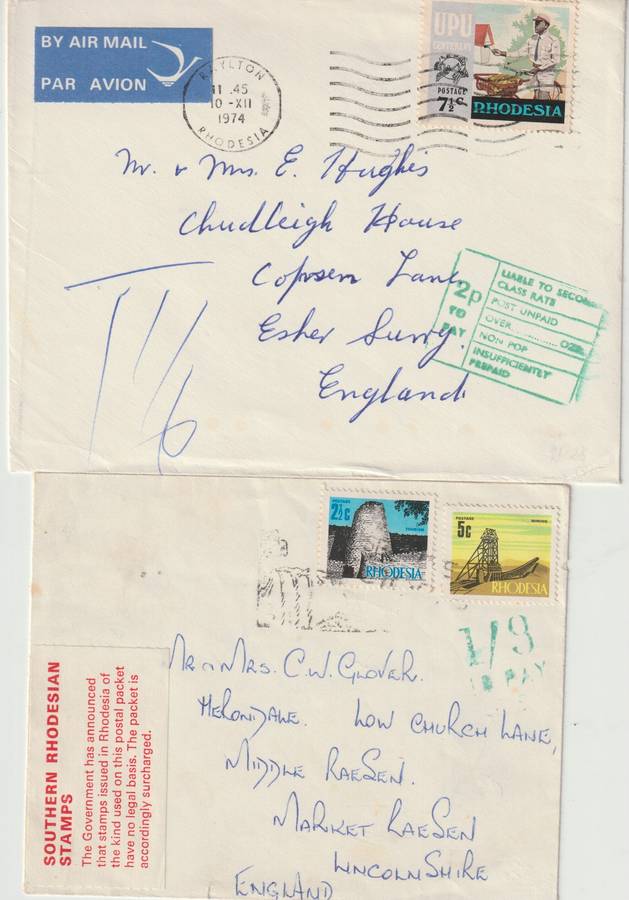 BY AIR MAIL
PAR AVION
RAYLTON
11 .45
10 -XII
1974
RHODESIA
UPU
CENTENARY
POSTAGE
7½c
RHODESIA
Mr. & Mrs. E. Hughes
Chudleigh House
Copsem Lane
Esher Surry.
England
T 1/6
2p
TO
PAY
LIABLE TO SECOND
CLASS RATE
POST UNPAID
OVER............ OZS.
NON POP
INSUFFICIENTLY
PREPAID
POSTAGE
2½c
TOURISM
RHODESIA
POSTAGE
MINING
5c
RHODESIA
1/3
PAY
Mr & Mrs. C.W. Glover.
Low Church Lane,
Middle Raesen.
Market Raesen
Lincolnshire
England
SOUTHERN RHODESIAN
STAMPS
The Government has announced
that stamps issued in Rhodesia of
the kind used on this postal packet
have no legal basis. The packet is
accordingly surcharged.